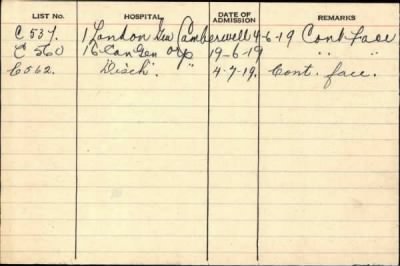 LIST NO. HOSPITAL DATE OF ADMISSION REMARKS
C 537. 1 London Gen Camberwell 4-6-19 Cont Face
C 560 16 Can Gen Orp 19-6-19 " "
C562. "Disch". 4-7-19. Cont. face.